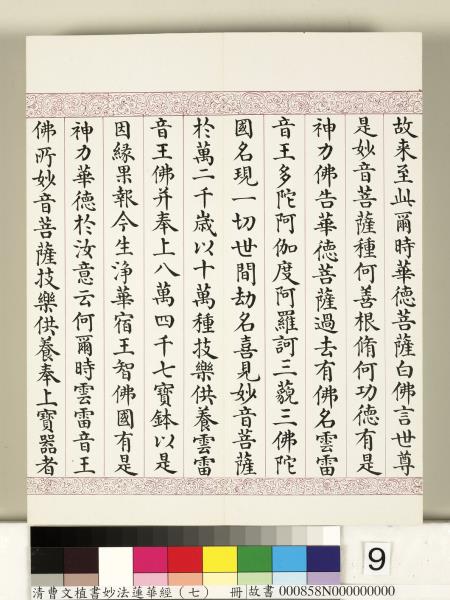 故来至此爾時華德菩薩白佛言世尊
是妙音菩薩種何善根脩何功德有是
神力佛告華德菩薩過去有佛名雲雷
音王多陀阿伽度阿羅訶三藐三佛陀
國名現一切世間劫名喜見妙音菩薩
於萬二千歳以十萬種技樂供養雲雷
音王佛并奉上八萬四千七寶鉢以是
因緣果報今生淨華宿王智佛國有是
神力華德於汝意云何爾時雲雷音王
佛所妙音菩薩技樂供養奉上寶器者
9
清曹文植書妙法蓮華經（七） 冊 故書 000858N000000000